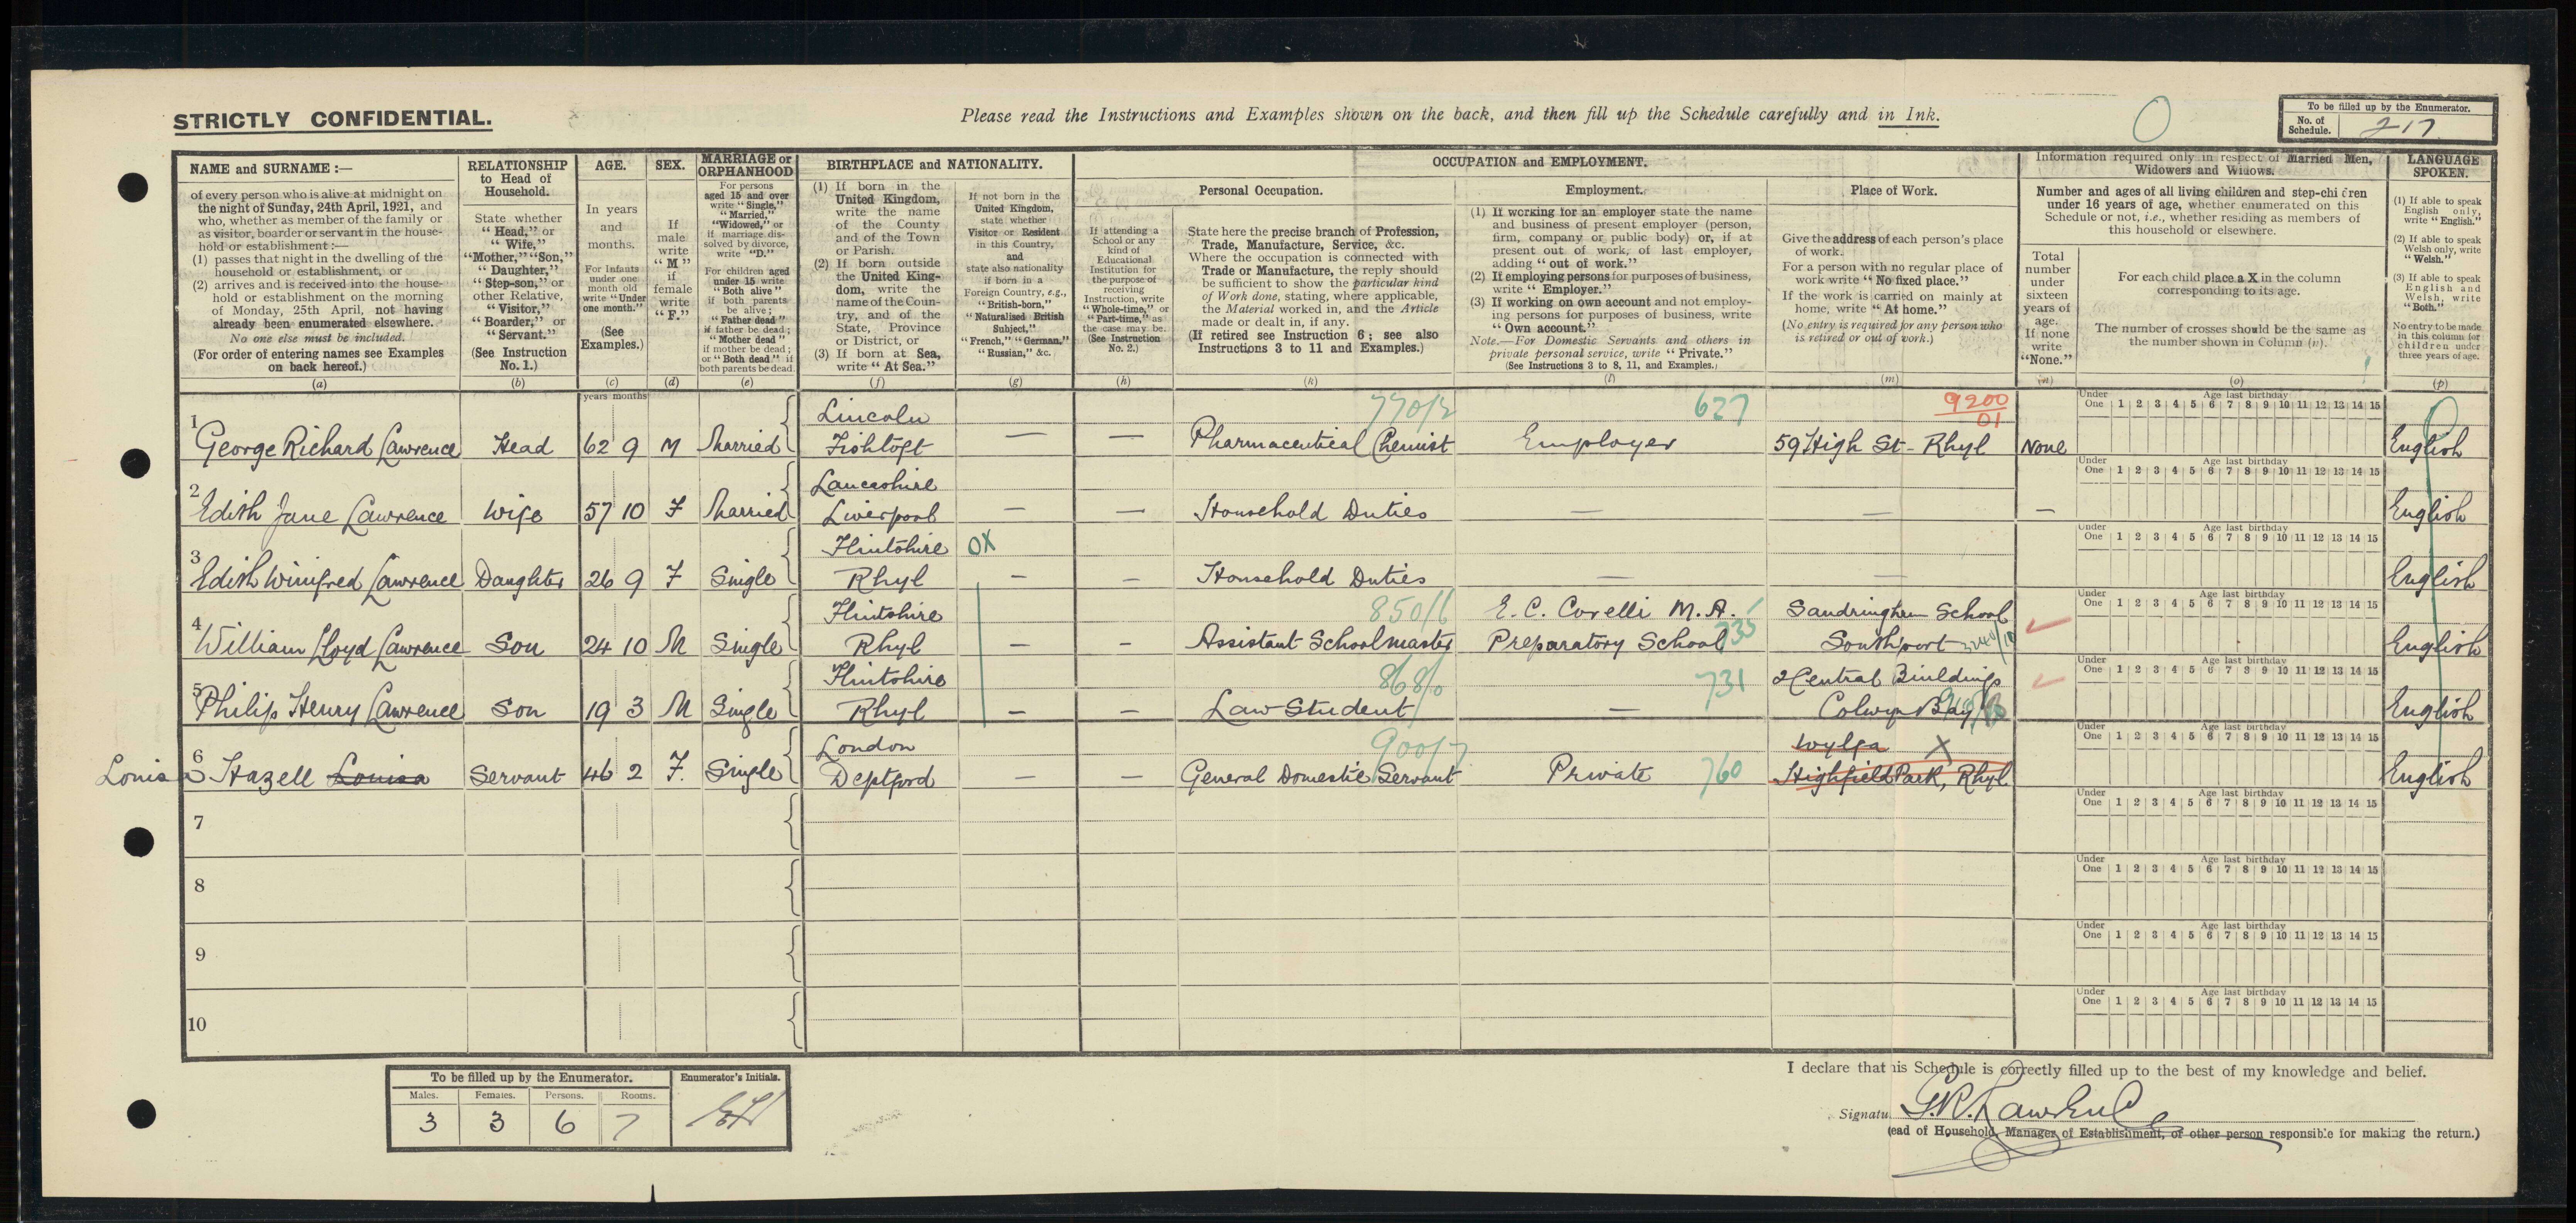 STRICTLY CONFIDENTIAL.
Please read the Instructions and Examples shown on the back, and then fill up the Schedule carefully and in Ink.
0
To be filled up by the Enumerator.
No. of Schedule. 217
NAME and SURNAME :—
of every person who is alive at midnight on
the night of Sunday, 24th April, 1921, and
who, whether as member of the family or
as visitor, boarder or servant in the house-
hold or establishment :—
(1) passes that night in the dwelling of the
household or establishment, or
(2) arrives and is received into the house-
hold or establishment on the morning
of Monday, 25th April, not having
already been enumerated elsewhere.
No one else must be included.
(For order of entering names see Examples
on back hereof.)
(a)
RELATIONSHIP
to Head of
Household.
State whether
“Head,” or
“Wife,”
“Mother,” “Son,”
“Daughter,”
“Step-son,” or
other Relative,
“Visitor,”
“Boarder,” or
“Servant.”
(See Instruction
No. 1.)
(b)
AGE.
In years
and
months.
For Infants
under one
month old
write “Under
one month.”
(See
Examples.)
(c)
SEX.
If
male
write
“M”
if
female
write
“F.”
(d)
MARRIAGE or
ORPHANHOOD
For persons
aged 15 and over
write “Single,”
“Married,”
“Widowed,” or
if marriage dis-
solved by divorce,
write “D.”
For children aged
under 15 write
“Both alive”
if both parents
be alive;
“Father dead”
if father be dead;
“Mother dead”
if mother be dead;
or “Both dead” if
both parents be dead.
(e)
BIRTHPLACE and NATIONALITY.
(1) If born in the
United Kingdom,
write the name
of the County
and of the Town
or Parish.
(2) If born outside
the United King-
dom, write the
name of the Coun-
try, and of the
State, Province
or District, or
(3) If born at Sea,
write “At Sea.”
(f)
If not born in the
United Kingdom,
state whether
Visitor or Resident
in this Country,
and
state also nationality
if born in a
Foreign Country, e.g.,
“British-born,”
“Naturalised British
Subject,”
“French,” “German,”
“Russian,” &c.
(g)
OCCUPATION and EMPLOYMENT.
If attending a
School or any
kind of
Educational
Institution for
the purpose of
receiving
Instruction, write
“Whole-time,” or
“Part-time,” as
the case may be.
(See Instruction
No. 2.)
(h)
Personal Occupation.
State here the precise branch of Profession,
Trade, Manufacture, Service, &c.
Where the occupation is connected with
Trade or Manufacture, the reply should
be sufficient to show the particular kind
of Work done, stating, where applicable,
the Material worked in, and the Article
made or dealt in, if any.
(If retired see Instruction 6; see also
Instructions 3 to 11 and Examples.)
(k)
Employment.
(1) If working for an employer state the name
and business of present employer (person,
firm, company or public body) or, if at
present out of work, of last employer,
adding “out of work.”
(2) If employing persons for purposes of business,
write “Employer.”
(3) If working on own account and not employ-
ing persons for purposes of business, write
“Own account.”
Note.—For Domestic Servants and others in
private personal service, write “Private.”
(See Instructions 3 to 8, 11, and Examples.)
(l)
Place of Work.
Give the address of each person's place
of work.
For a person with no regular place of
work write “No fixed place.”
If the work is carried on mainly at
home, write “At home.”
(No entry is required for any person who
is retired or out of work.)
(m)
Information required only in respect of Married Men,
Widowers and Widows.
Number and ages of all living children and step-children
under 16 years of age, whether enumerated on this
Schedule or not, i.e., whether residing as members of
this household or elsewhere.
Total
number
under
sixteen
years of
age.
If none
write
“None.”
(n)
For each child place a X in the column
corresponding to its age.
The number of crosses should be the same as
the number shown in Column (n).
(o)
LANGUAGE
SPOKEN.
(1) If able to speak
English only,
write “English.”
(2) If able to speak
Welsh only, write
“Welsh.”
(3) If able to speak
English and
Welsh, write
“Both.”
No entry to be made
in this column for
children under
three years of age.
(p)
years months
Lincoln 770/2 627 9200/01
Under One 1 2 3 4 5 6 7 8 9 10 11 12 13 14 15 Age last birthday
1 George Richard Lawrence Head 62 9 M Married Fishtoft — — Pharmaceutical Chemist Employer 59 High St - Rhyl None English
Lancashire
Under One 1 2 3 4 5 6 7 8 9 10 11 12 13 14 15 Age last birthday
2 Edith Jane Lawrence Wife 57 10 F Married Liverpool — — Household Duties — — — English
Flintshire OX
Under One 1 2 3 4 5 6 7 8 9 10 11 12 13 14 15 Age last birthday
3 Edith Winifred Lawrence Daughter 26 9 F Single Rhyl — — Household Duties — — English
Flintshire 850/6 E. C. Corelli M.A. Sandringham School
Under One 1 2 3 4 5 6 7 8 9 10 11 12 13 14 15 Age last birthday
4 William Lloyd Lawrence Son 24 10 M Single Rhyl — — Assistant Schoolmaster Preparatory School 735 Southport English
Flintshire 868/0 731 2 Central Buildings
Under One 1 2 3 4 5 6 7 8 9 10 11 12 13 14 15 Age last birthday
5 Philip Henry Lawrence Son 19 3 M Single Rhyl — — Law Student — Colwyn Bay English
London 900/7 Wylfa X
Under One 1 2 3 4 5 6 7 8 9 10 11 12 13 14 15 Age last birthday
Louisa 6 Hazell Louisa Servant 46 2 F. Single Deptford — — General Domestic Servant Private 760 Highfield Park, Rhyl English
7 Under One 1 2 3 4 5 6 7 8 9 10 11 12 13 14 15 Age last birthday
8 Under One 1 2 3 4 5 6 7 8 9 10 11 12 13 14 15 Age last birthday
9 Under One 1 2 3 4 5 6 7 8 9 10 11 12 13 14 15 Age last birthday
10 Under One 1 2 3 4 5 6 7 8 9 10 11 12 13 14 15 Age last birthday
To be filled up by the Enumerator.
Males. Females. Persons. Rooms.
3 3 6 7
Enumerator's Initials.
I declare that his Schedule is correctly filled up to the best of my knowledge and belief.
Signatu G.R. Lawrence
(ead of Household, Manager of Establishment, or other person responsible for making the return.)